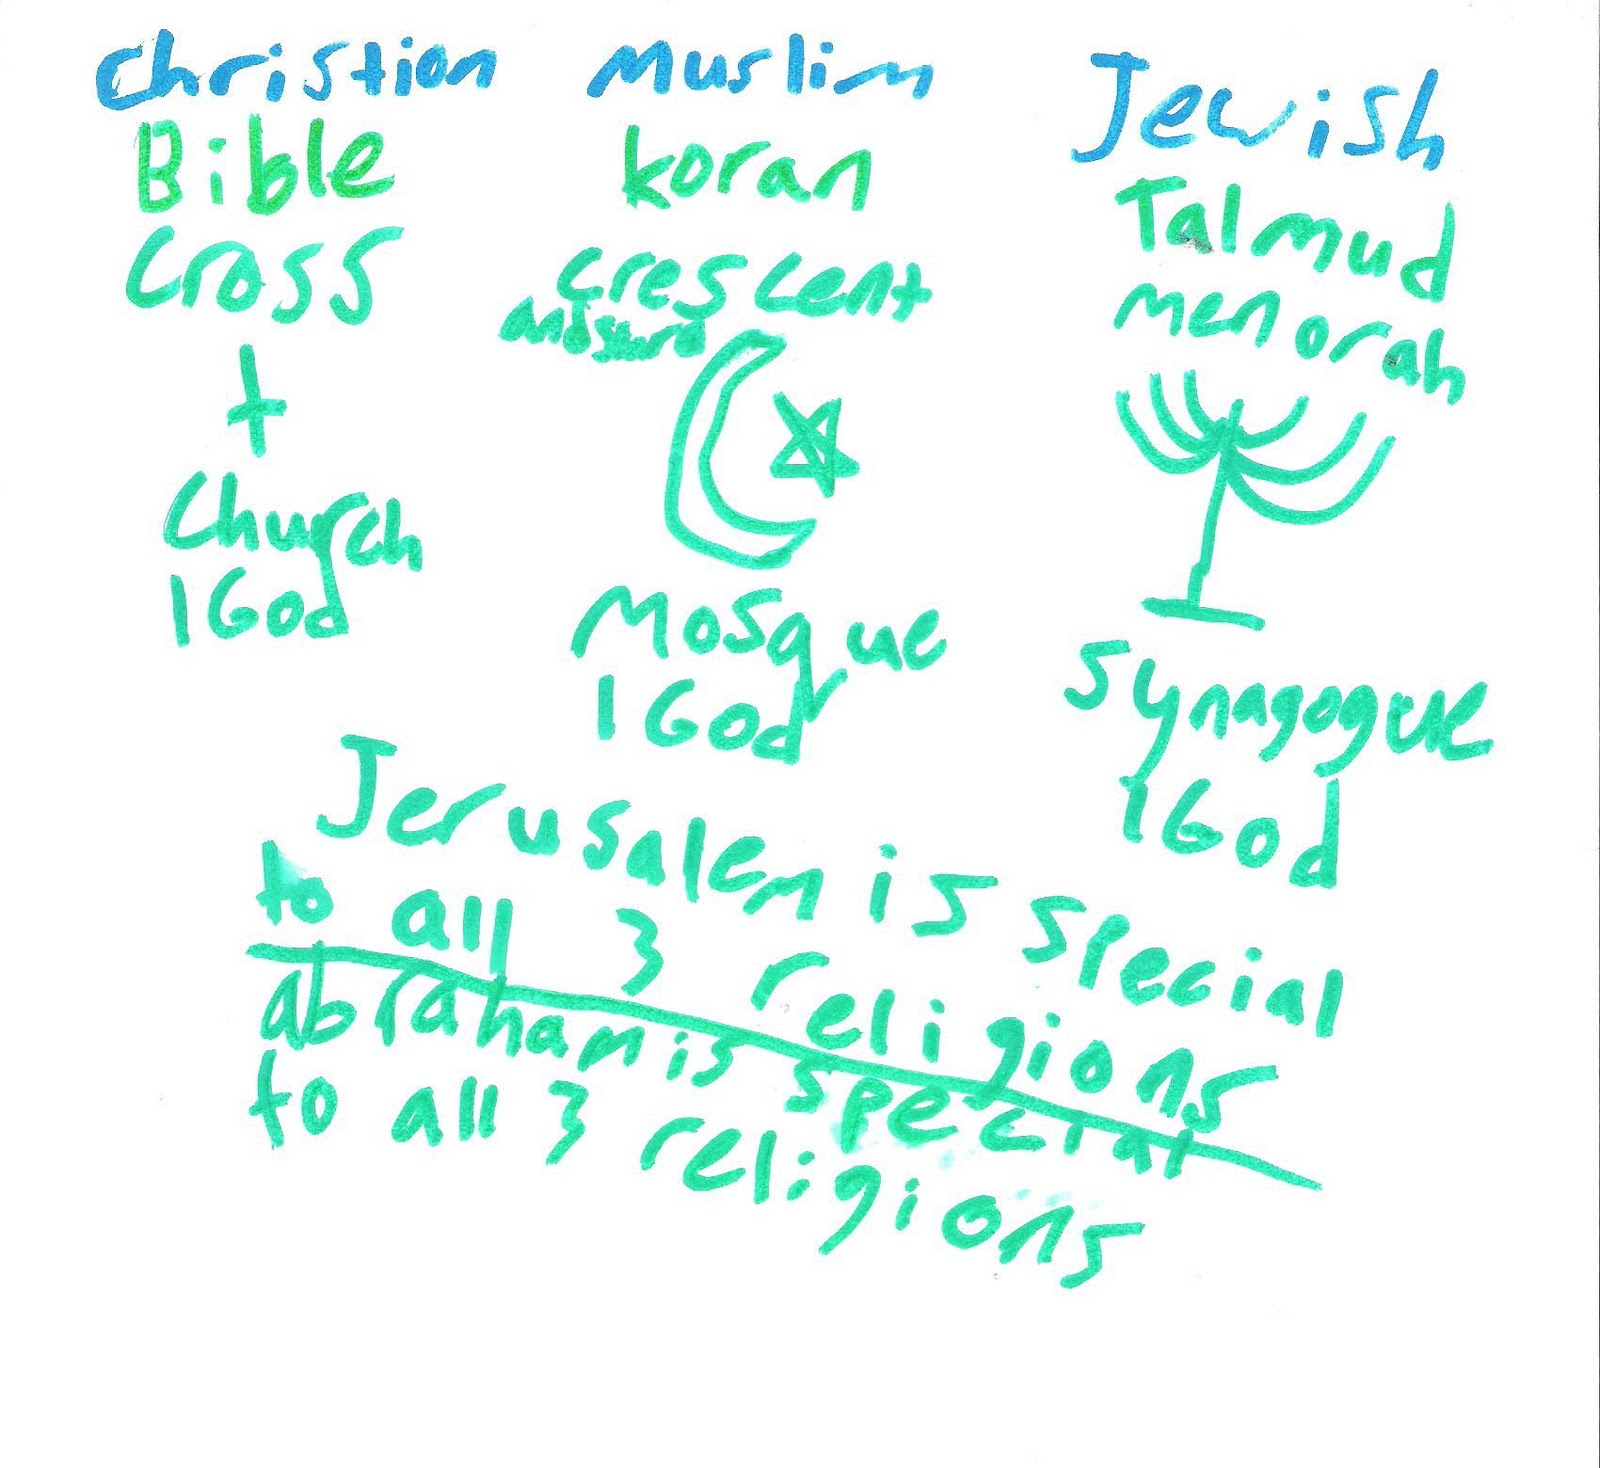 Christian
Bible
Cross
Church
1 God
Muslim
koran
crescent
and star
Mosque
1 God
Jewish
Talmud
menorah
Synagogue
1 God
Jerusalem is special
to all 3 religions
abraham is special
to all 3 religions